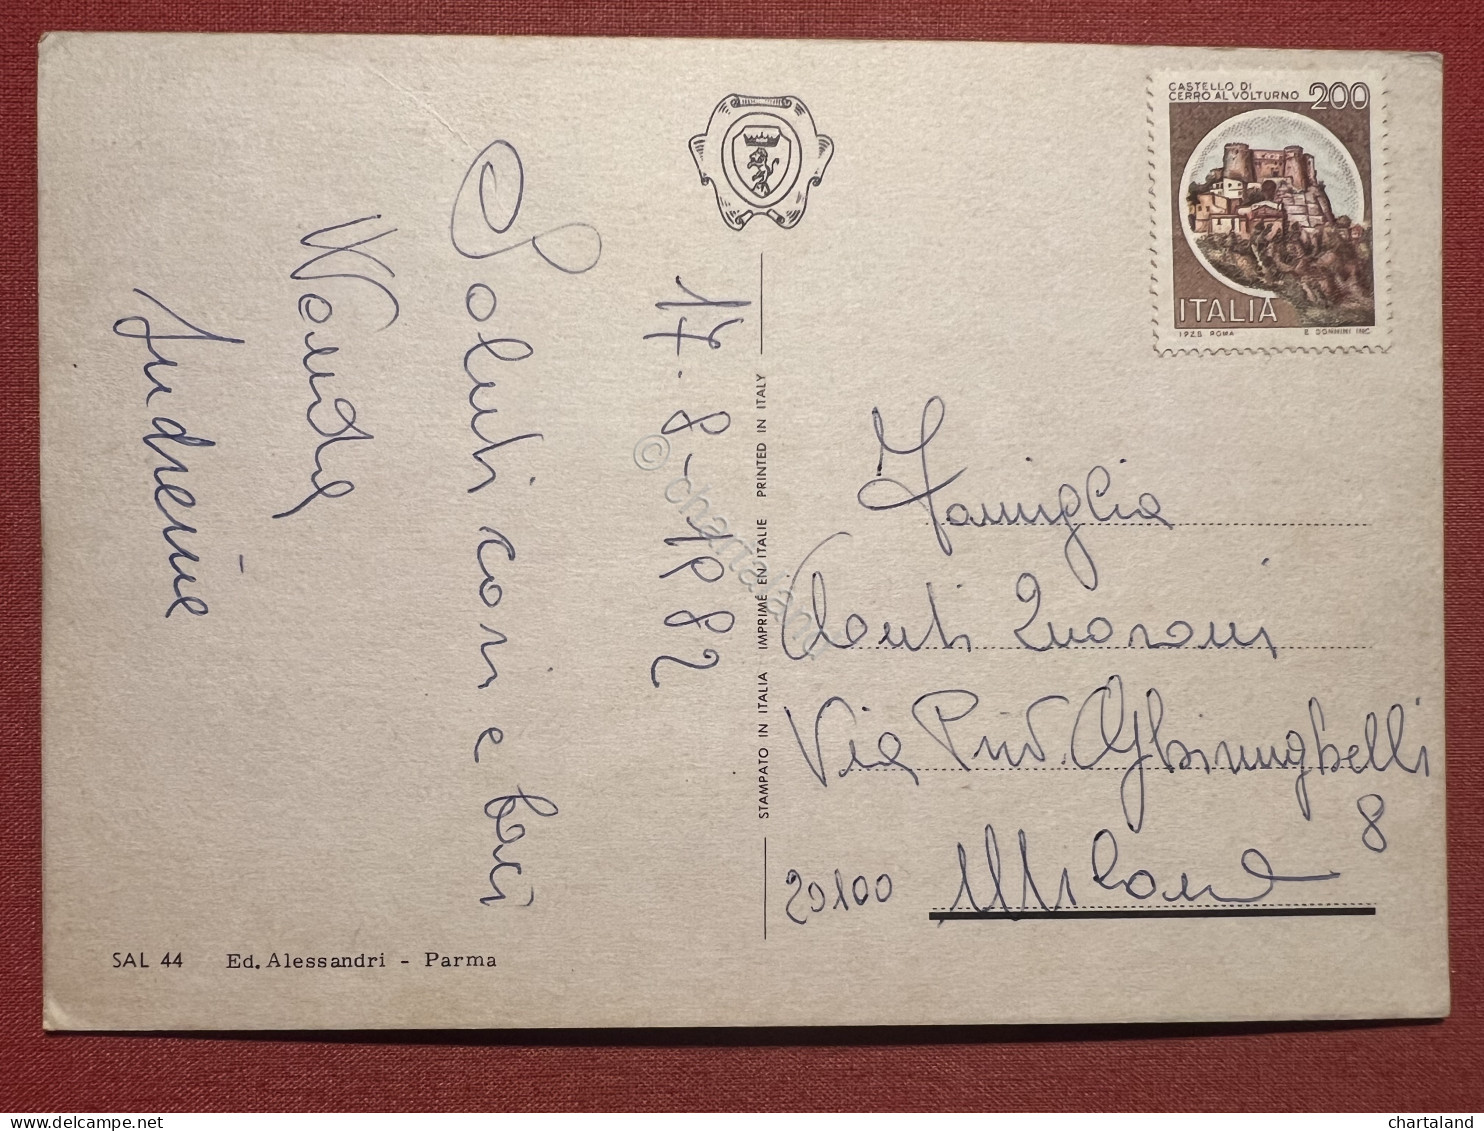 CASTELLO DI
CERRO AL VOLTURNO 200
ITALIA
I.P.Z.S. ROMA E. DONNINI INC.
17.8-1982
Saluti cari e baci
Wanda
Andreina
STAMPATO IN ITALIA IMPRIMÉ EN ITALIE PRINTED IN ITALY
Famiglia
Conti
Via Privata
8
20100 Milano
SAL 44 Ed. Alessandri - Parma
© chartaland
chartaland